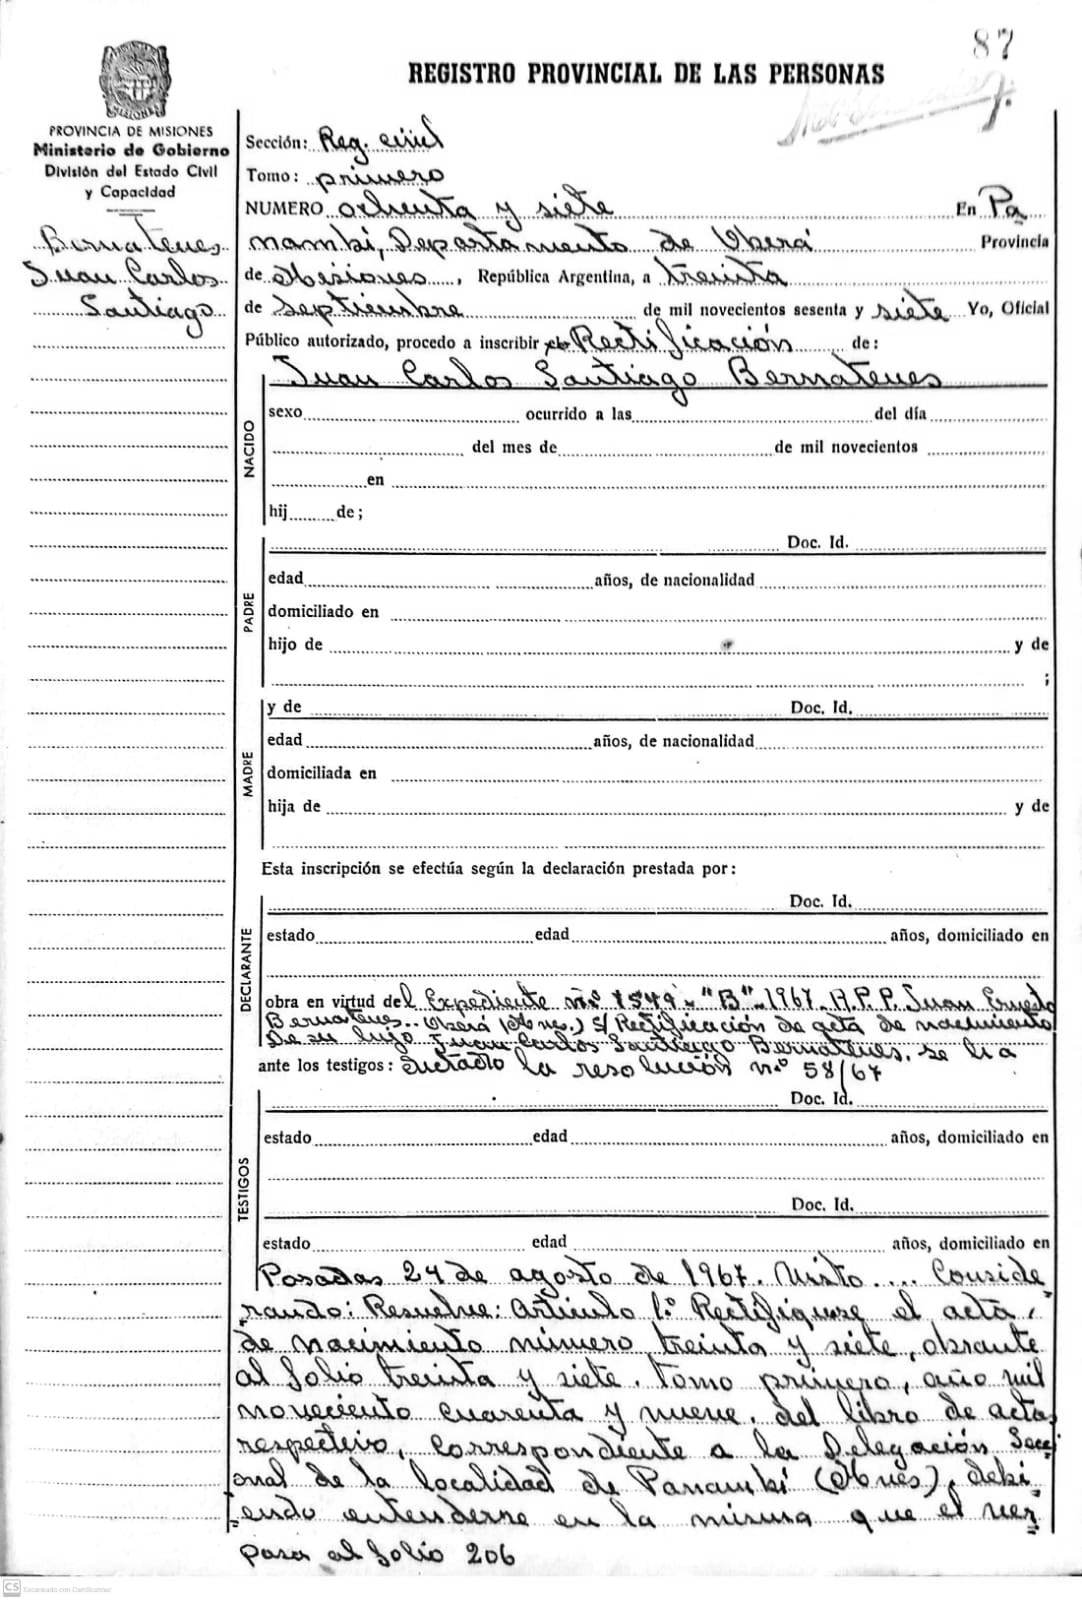 87
REGISTRO PROVINCIAL DE LAS PERSONAS
MISIONES
PROVINCIA DE MISIONES
Ministerio de Gobierno
División del Estado Civil
y Capacidad
Bernatenes
Juan Carlos
Santiago
Sección: Reg. civil
Tomo: primero
NUMERO ochenta y siete En Pa
nambí, Departamento de Oberá Provincia
de Misiones, República Argentina, a treinta
de septiembre de mil novecientos sesenta y siete Yo, Oficial
Público autorizado, procedo a inscribir Rectificación de:
Juan Carlos Santiago Bernatenes
NACIDO
sexo ocurrido a las del día
del mes de de mil novecientos
en
hij de;
PADRE
Doc. Id.
edad años, de nacionalidad
domiciliado en
hijo de y de
;
MADRE
y de Doc. Id.
edad años, de nacionalidad
domiciliada en
hija de y de
Esta inscripción se efectúa según la declaración prestada por:
DECLARANTE
Doc. Id.
estado edad años, domiciliado en
obra en virtud del Expediente nº 1549 - "B" - 1967 - R.P.P. Juan Ernesto
Bernatenes.. Oberá (Mnes.) S/ Rectificación de acta de nacimiento
De su hijo Juan Carlos Santiago Bernatenes, se ha
ante los testigos: dictado la resolución nº 58/67
TESTIGOS
Doc. Id.
estado edad años, domiciliado en
Doc. Id.
estado edad años, domiciliado en
Posadas 24 de agosto de 1967. Visto .... Conside
rando: Resuelve: Artículo 1.º Rectifíquese el acta
de nacimiento número treinta y siete, obrante
al folio treinta y siete. Tomo primero, año mil
noveciento cuarenta y nueve. del libro de actas
respectivo, correspondiente a la Delegación Secci
onal de la localidad de Panambí (Mnes), debi
endo entenderse en la misma que el ver
pasa al folio 206
CS Escaneado con CamScanner